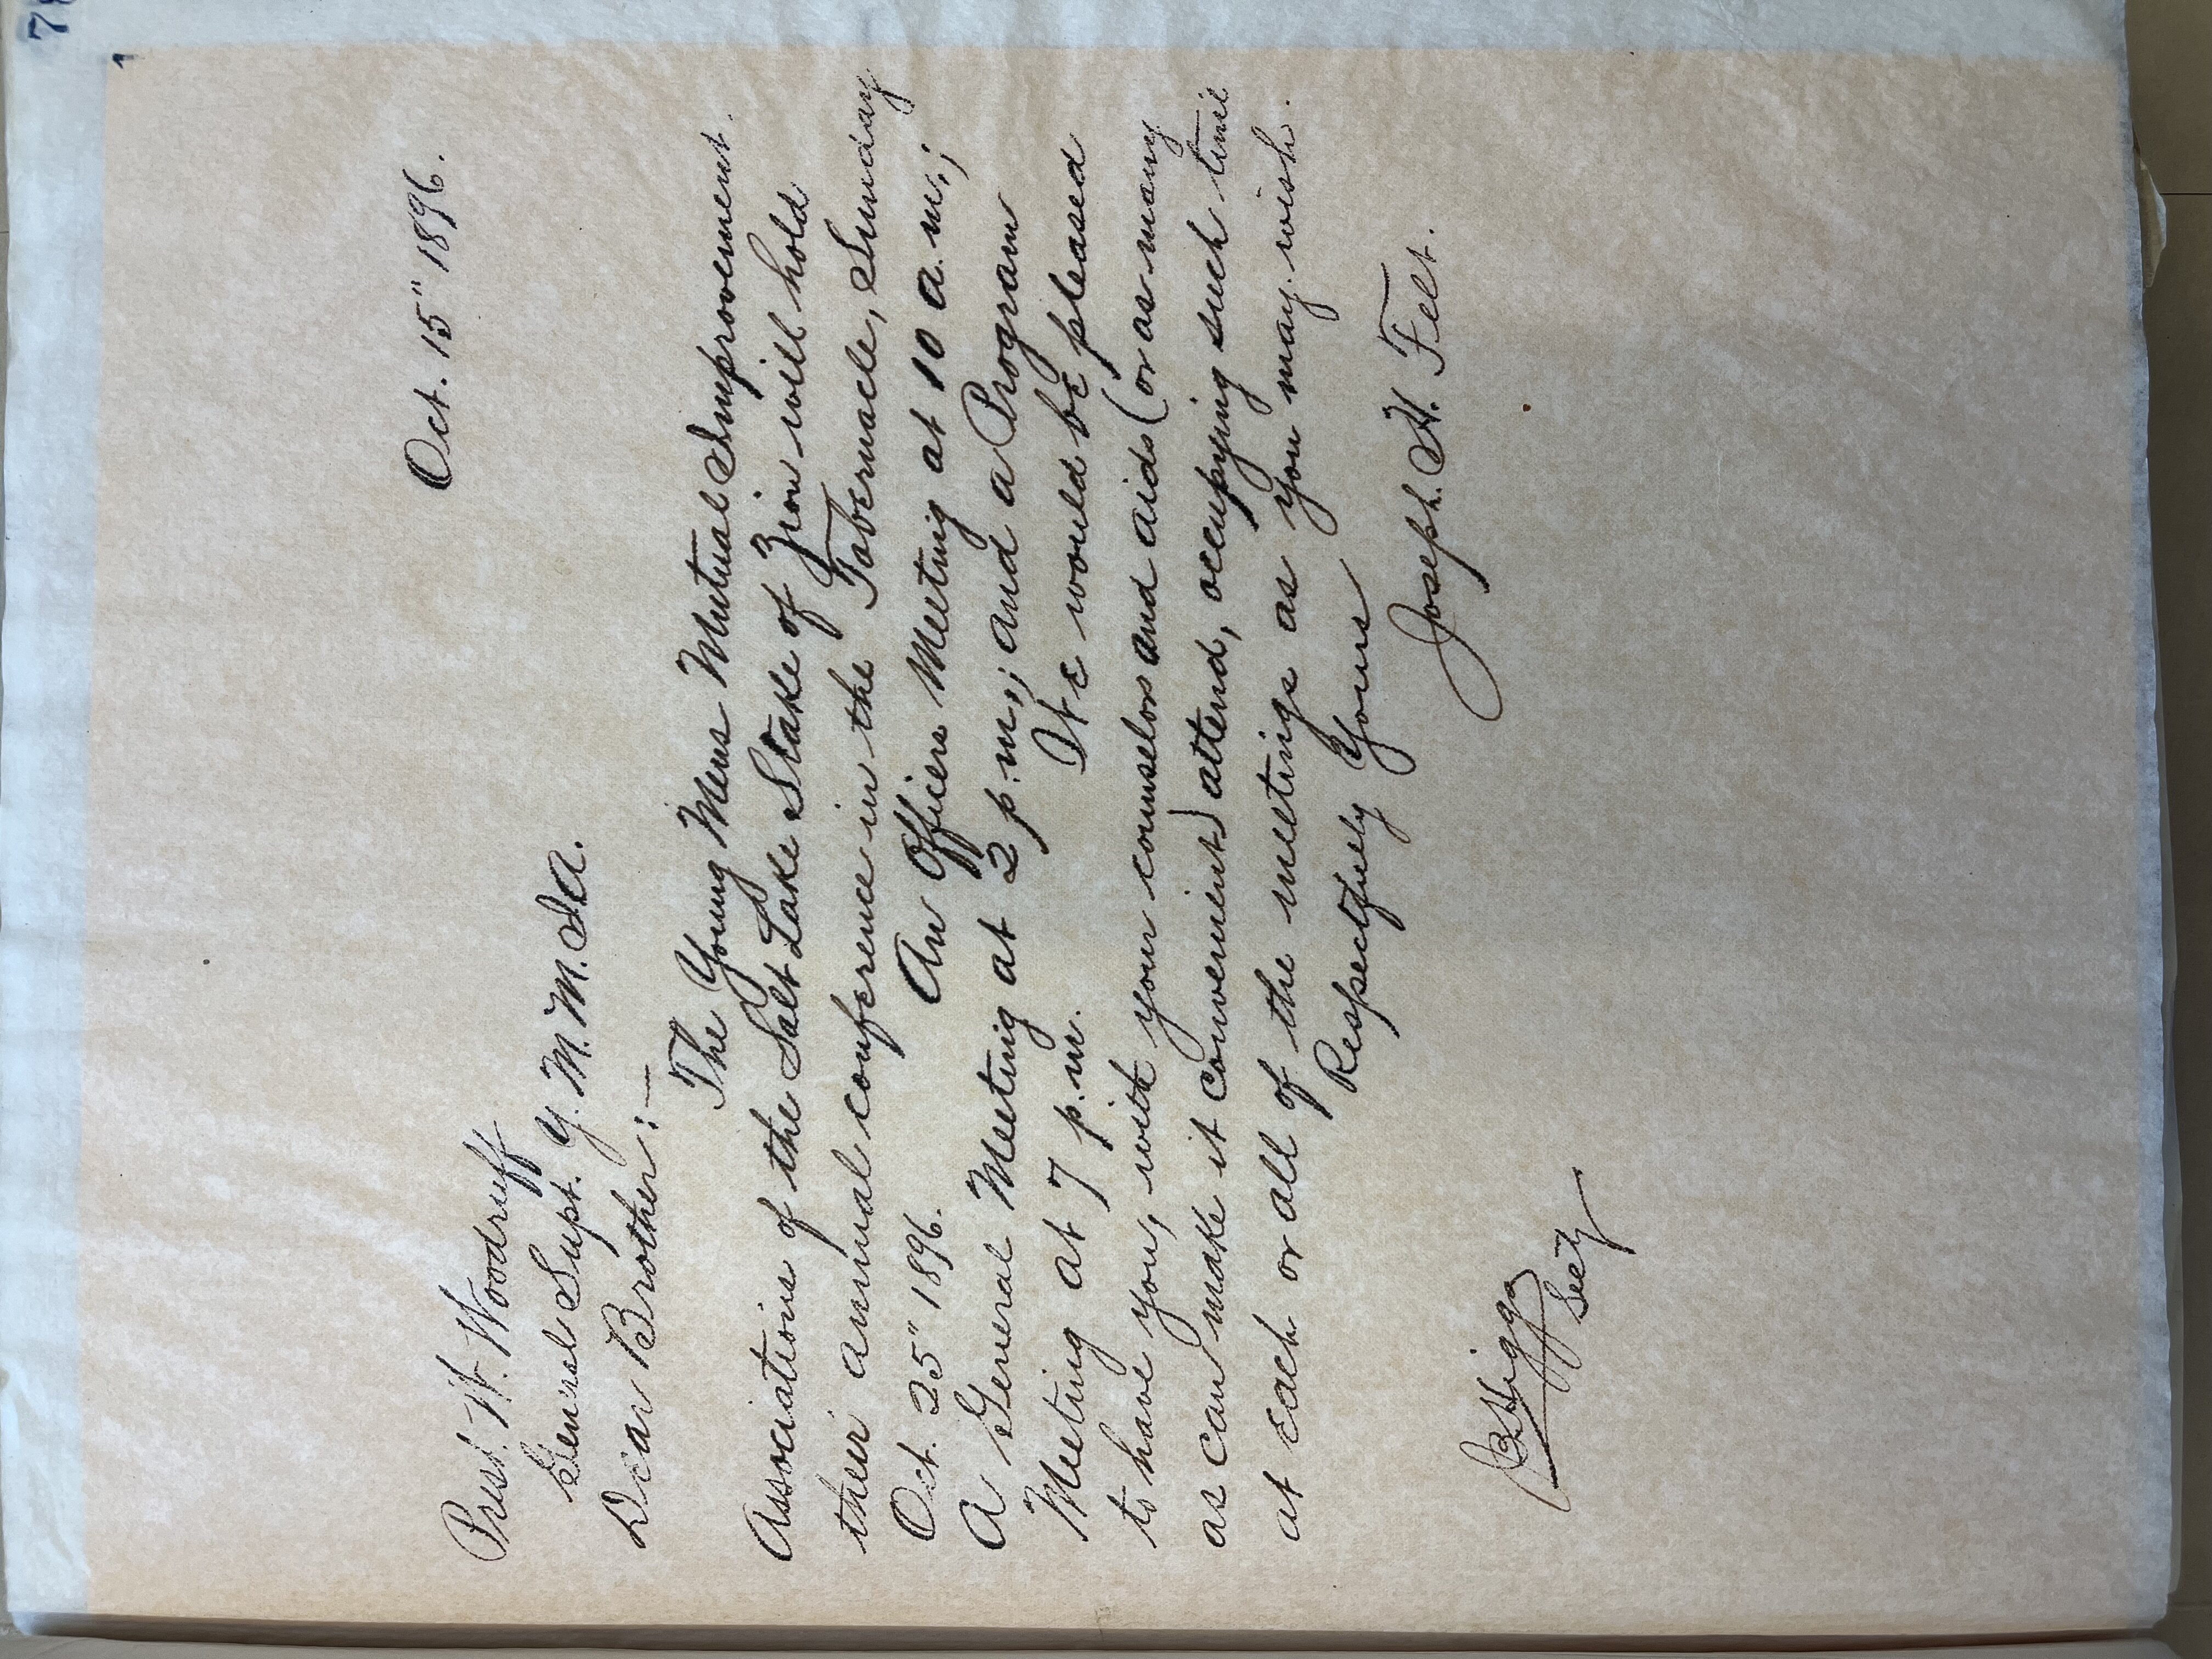 Oct. 15" 1896.
Prest. W. Woodruff
General Supt. Y. M. M. I. A.
Dear Brother:—
The Young Mens Mutual Improvement.
Associations of the Salt Lake Stake of Zion will hold
their annual conference in the Tabernacle, Sunday
Oct. 25" 1896.
An Officers Meeting at 10 a. m.;
A General Meeting at 2 p. m.; and a Program
Meeting at 7 p. m. It would be pleased
to have you, with your counselors and aids (or as many
as can make it convenient) attend, occupying such time
at each or all of the meetings as you may wish.
Respectfully Yours
Joseph H. Felt.
Higgs
Sec'y